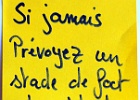 Si jamais
Prévoyez un
stade de foot